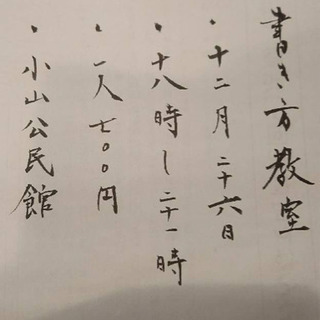 書き方教室
・十二月二十六日
・十八時〜二十一時
・一人七〇〇円
・小山公民館